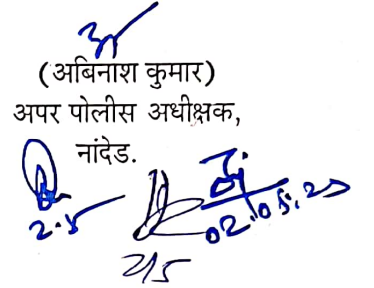 (अबिनाश कुमार)
अपर पोलीस अधीक्षक,
नांदेड.
2.5
02.05.25
2/5